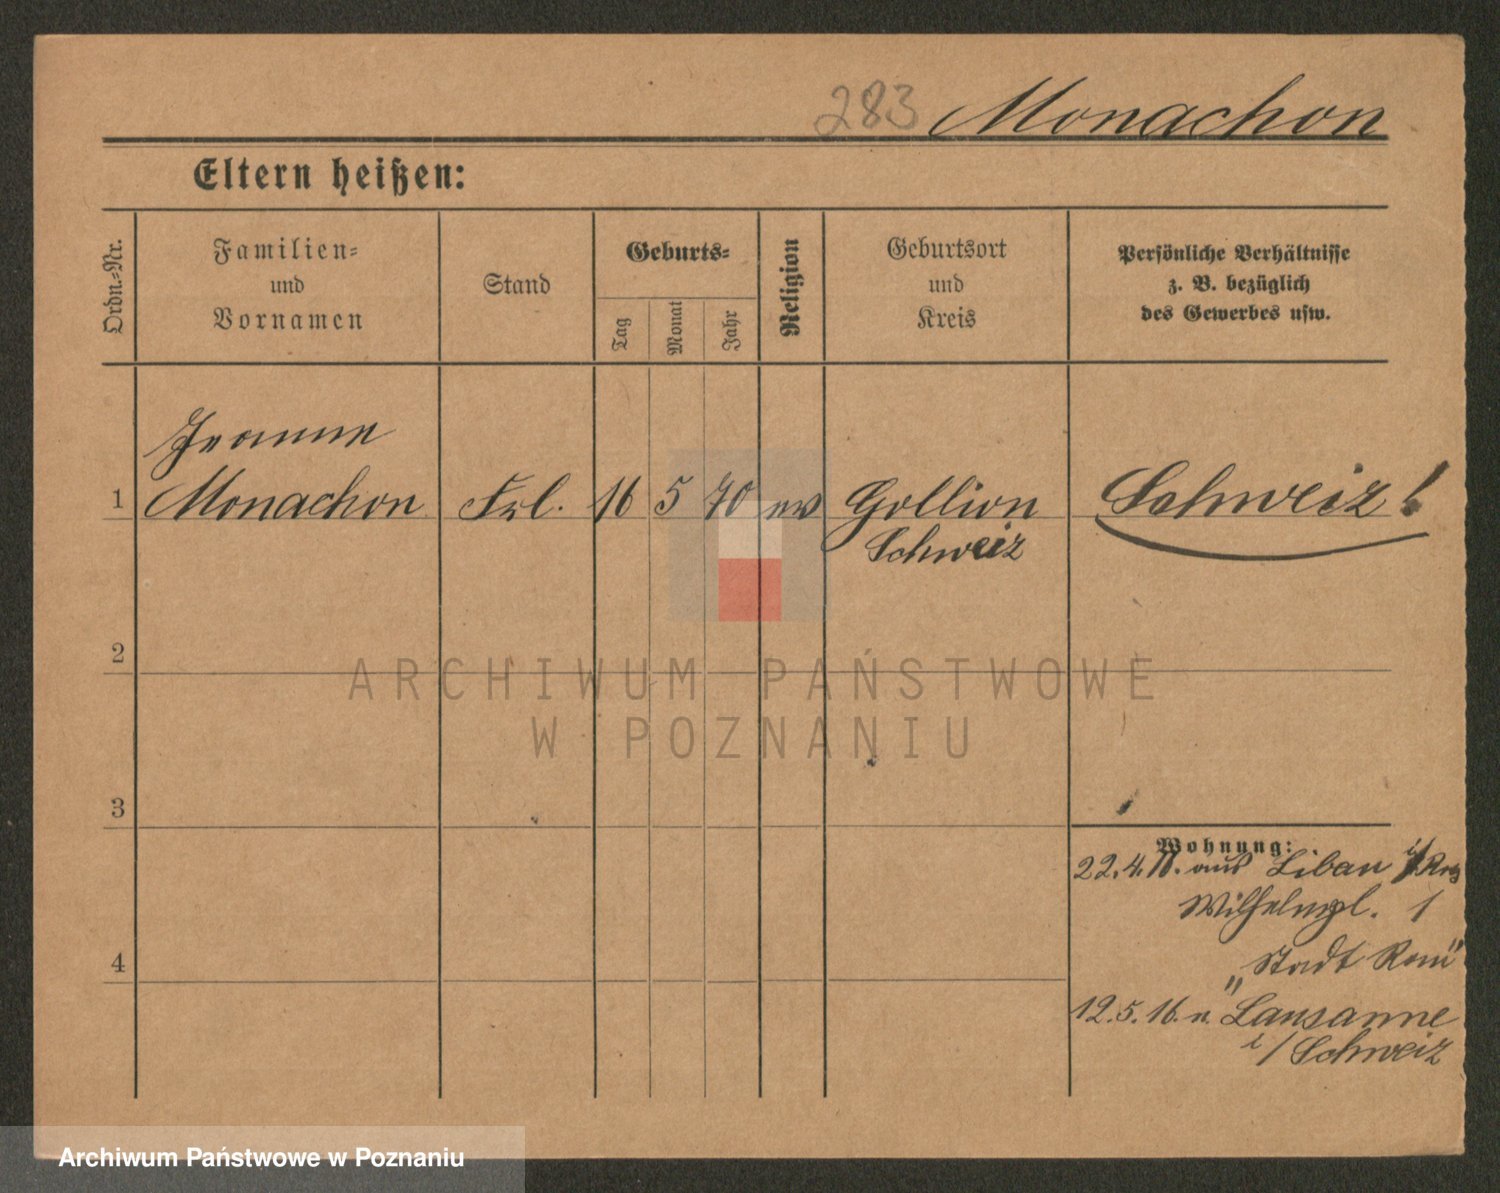 283 Monachon
Eltern heißen:
Ordn.-Nr.
Familien-
und
Vornamen
Stand
Geburts-
Tag
Monat
Jahr
Religion
Geburtsort
und
Kreis
Persönliche Verhältnisse
z. B. bezüglich
des Gewerbes usw.
Jeanne
1 Monachon Frl. 16 5 70 ev Gollion Schweiz!
Schweiz
2
3
4
Wohnung:
22.4.16. aus Liban i/
Wilhelmpl. 1
„Stadt Rom"
12.5.16. n. Lausanne
i/Schweiz
ARCHIWUM PAŃSTWOWE
W POZNANIU
Archiwum Państwowe w Poznaniu